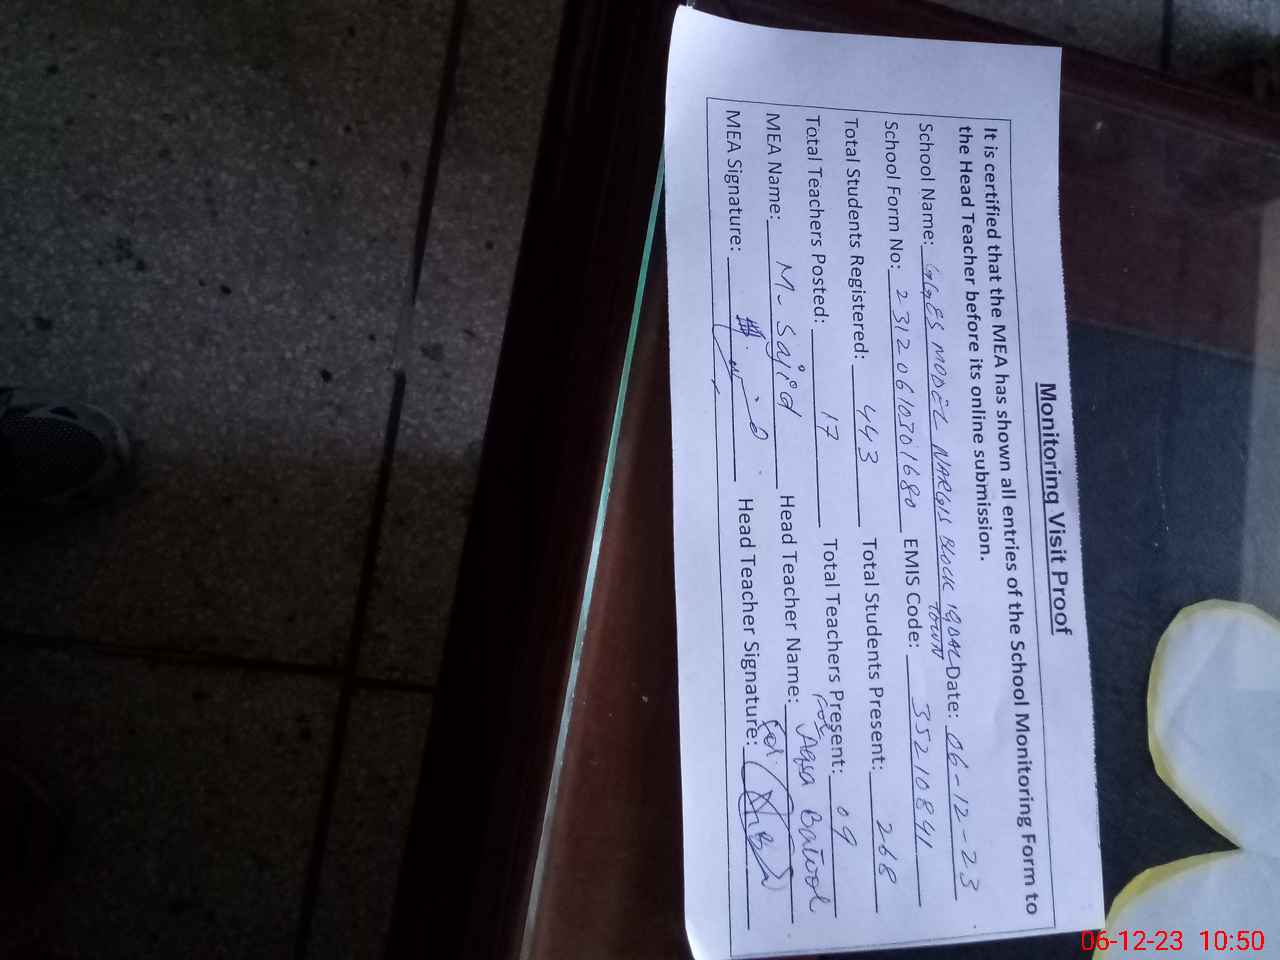 Monitoring Visit Proof
It is certified that the MEA has shown all entries of the School Monitoring Form to
the Head Teacher before its online submission.
School Name: GGES MODEL NARGIS BLOCK IQBAL TOWN Date: 06-12-23
School Form No: 23120610801680 EMIS Code: 35210841
Total Students Registered: 443 Total Students Present: 268
Total Teachers Posted: 17 Total Teachers Present: 09
MEA Name: M. Sajid Head Teacher Name: for Aqsa Batool
MEA Signature: Head Teacher Signature: for
06-12-23 10:50